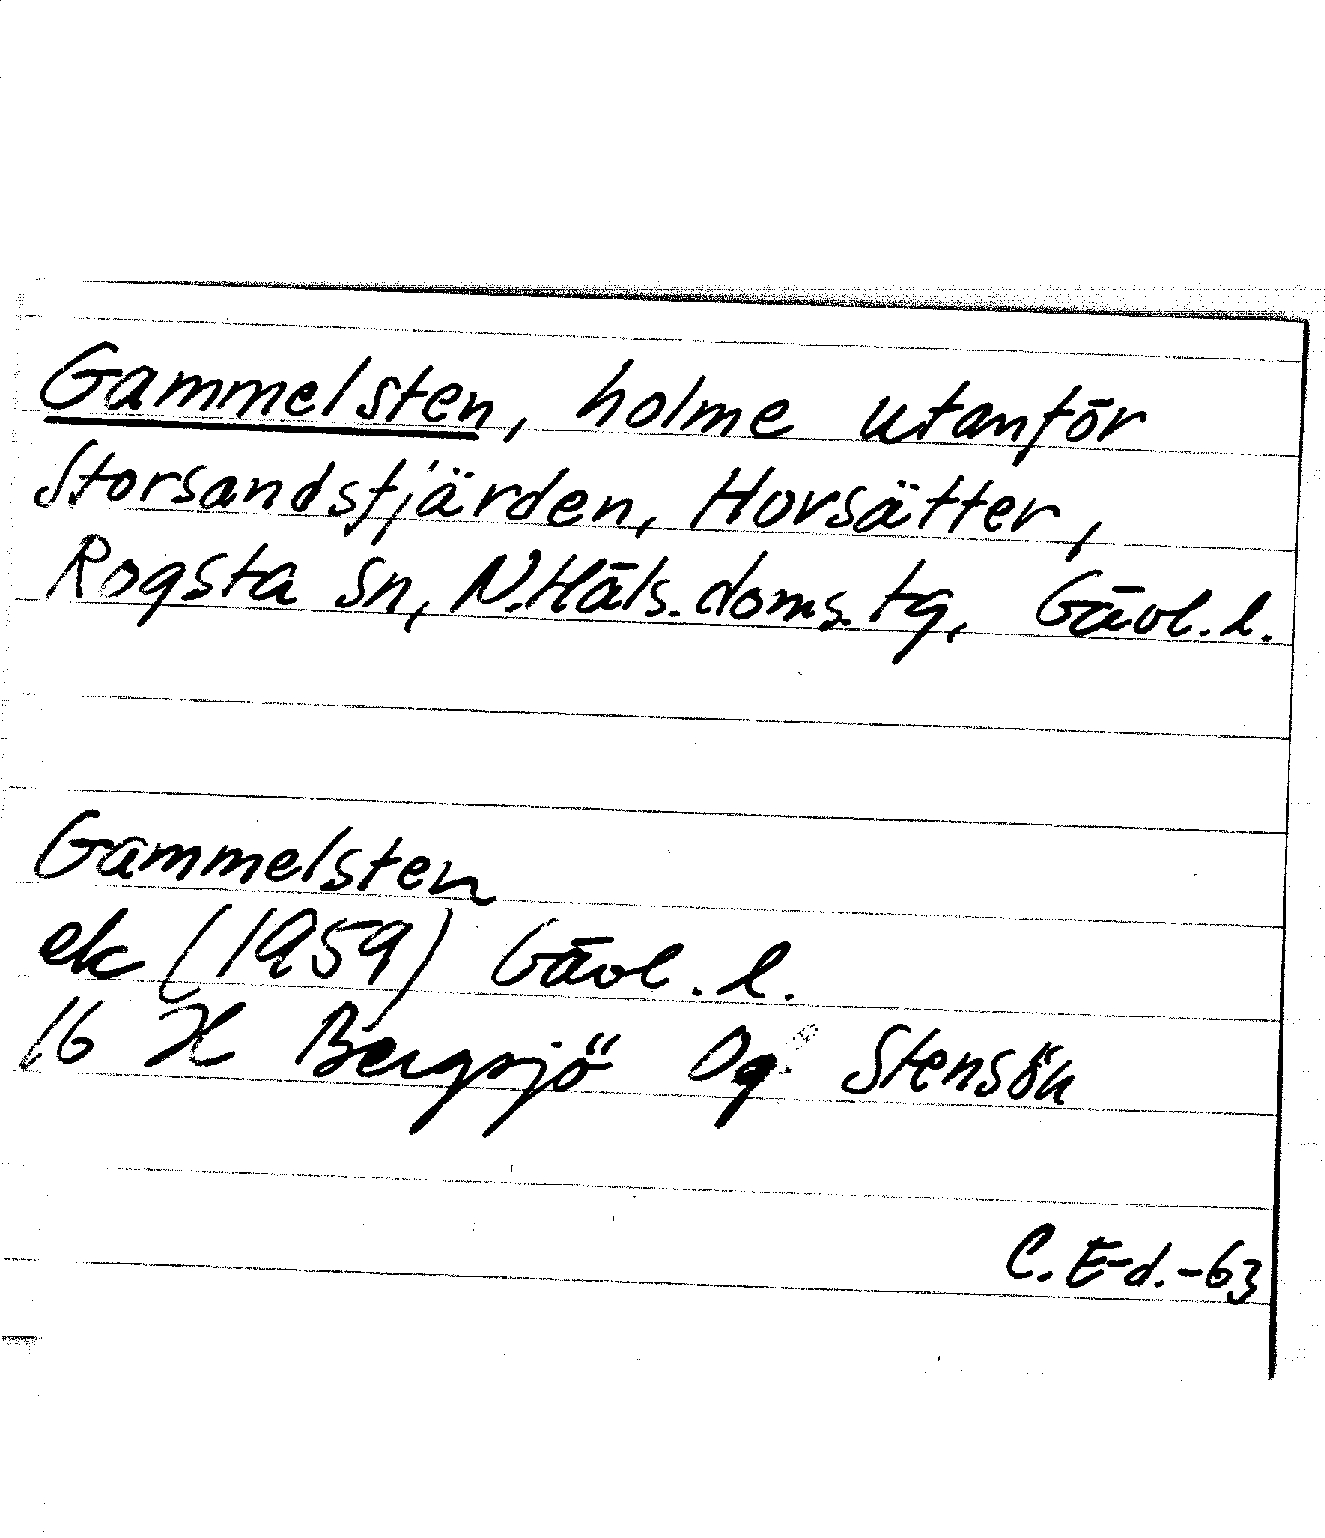 Gammelsten, holme utanför
Storsandsfjärden, Hovsätter,
Rogsta sn, N.Häls.doms.tg, Gävl.l.
Gammelsten
ek (1959) Gävl.l.
16 H Bergsjö Og Stensön
C. E-d.-63